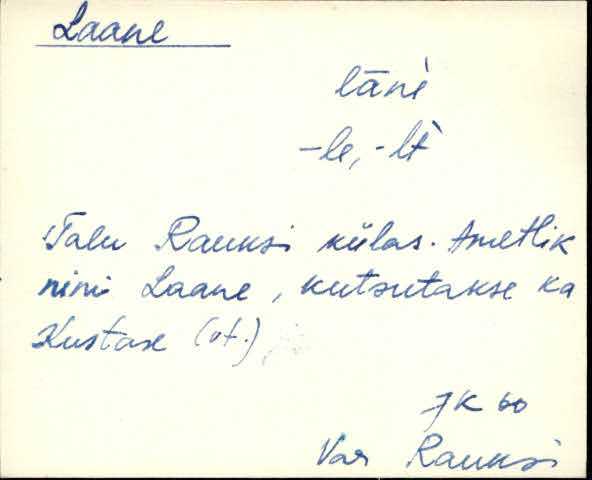 Laane
lānè͕
-le, -lt
Talu Rauksi külas. Ametlik
nimi Laane, kutsutakse ka
Kustase (vt.)
JK 60
Var Rauksi